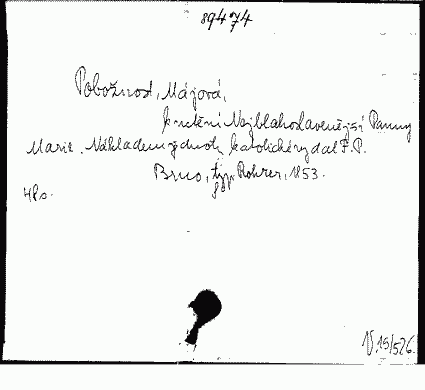 89474
Pobožnost, Májová,
k uctění Nejblahoslavenější Panny
Marie. Nákladem jednoty katolické vydal F. P.
Brno, typ. Rohrer, 1853.
8°
48 s.
V. 15/526.